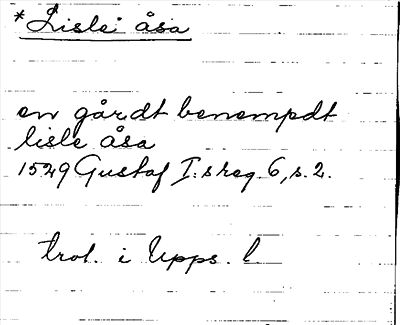 *Lisle åsa
en gårdt benempdt
lisle åsa
1529 Gustaf I:s reg. 6, s. 2.
trol. i Upps. l